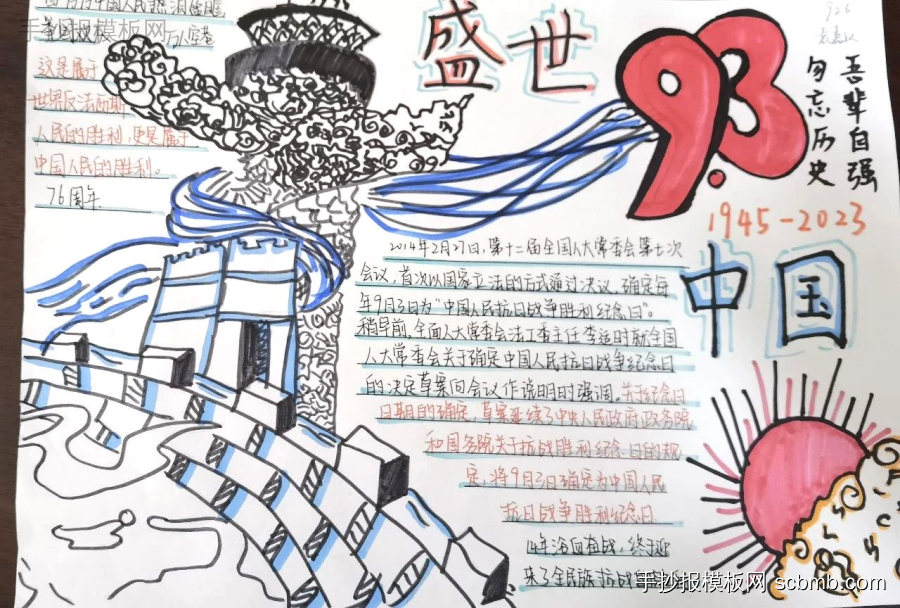 中国人民热泪
手抄报模板网
万人空巷
这是属于
世界反法西斯
人民的胜利,更是属于
中国人民的胜利。
76周年
盛世
9.3
吾辈自强
勿忘历史
1945-2023
中国
2014年2月27日,第十二届全国人大常委会第七次
会议,首次以国家立法的方式通过决议,确定每
年9月3日为“中国人民抗日战争胜利纪念日”。
稍早前,全国人大常委会法工委主任李适时就全国
人大常委会关于确定中国人民抗日战争纪念日
的决定草案向会议作说明时强调,
日期的确定,草案延续了中央人民政府政务院
和国务院关于抗战胜利纪念日的规
定,将9月3日确定为中国人民
抗日战争胜利纪念日
14年浴血奋战,终于迎
来了全民族抗战
手抄报模板网 scbmb.com